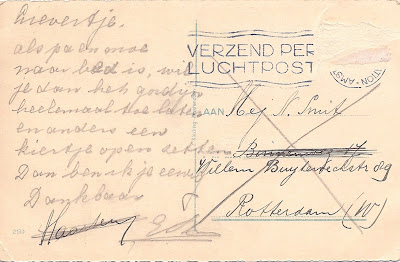 Grevertje,
als pa en moe
naar bed is, wil
je dan het gordijn
heelemaal toe laten
en anders een
kiertje open zetten
Dan ben ik je eeuwig
Dankbaar
VERZEND PER
LUCHTPOST
AAN
Mej N. Smit
Binnenweg 17
Willem Buytewechstr 89
Rotterdam (W)